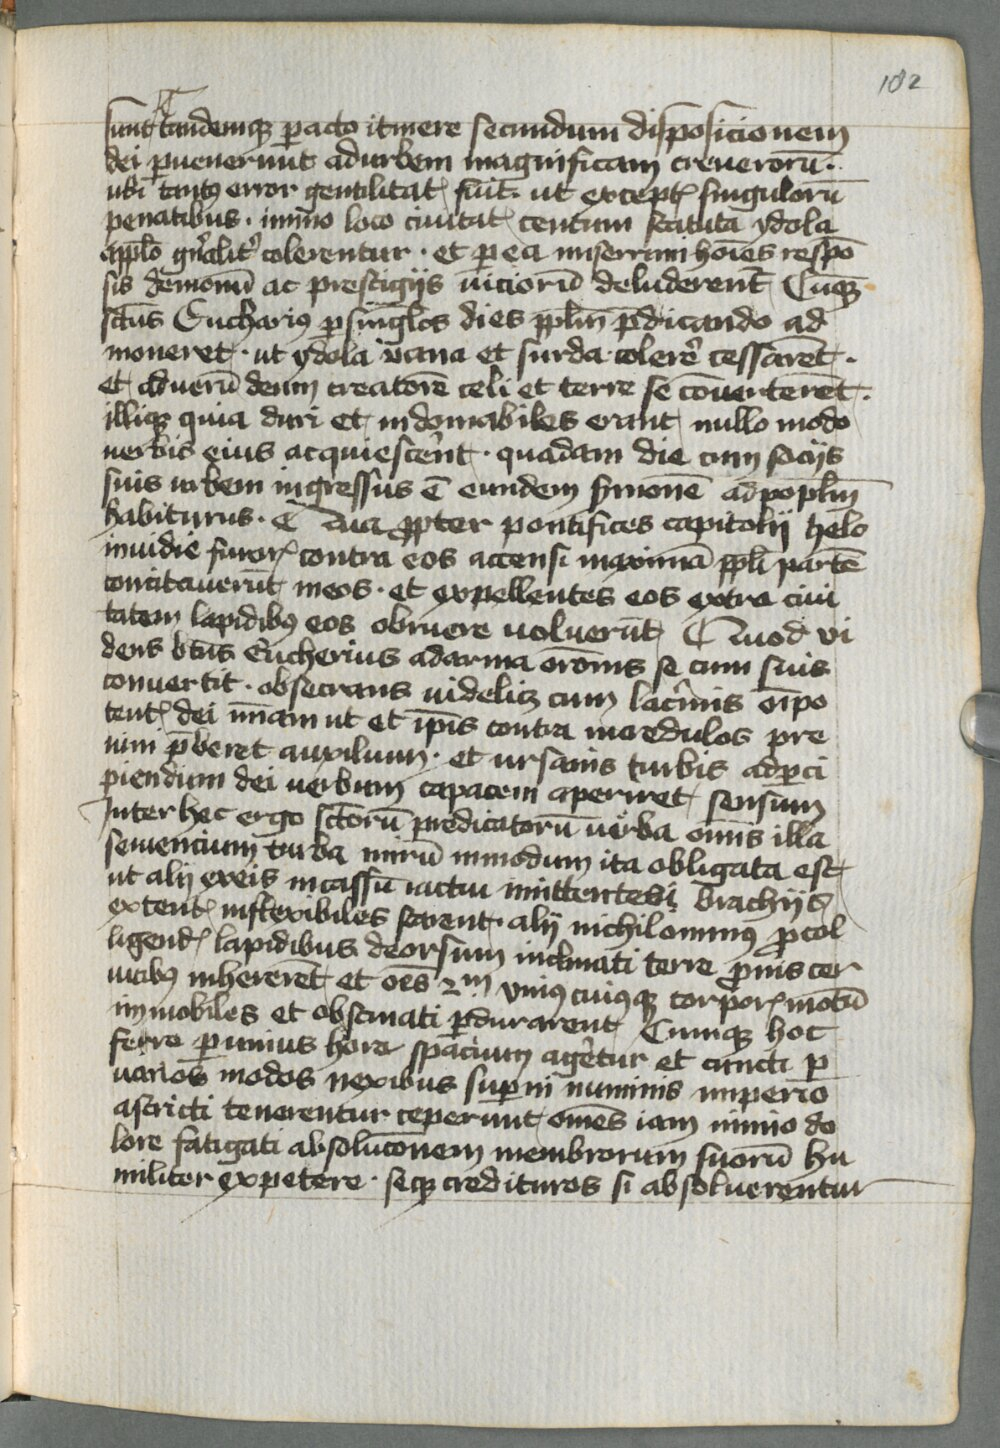 182
sunt tandemqꝫ ꝑacto itinere secundum disposicionem
dei ꝑuenerunt adurbem magnificam treuerorū ·
ubi tantꝰ error gentilitatꝭ fuit · ut exceptꝭ singulorū
penatibus · in uno loco ciuitatꝭ centum statuta ydola
appl̄o gn̄alitˀ colerentur · et ꝑ ea miserrimi hoīes respō
sis demonū ac prestigijs uiciorū deluderent̄ Cuqꝫ
sctūs Eucharius ꝑ singlos dies ppl̄m p̄dicando ad
moneret · ut ydola uana et surda colerē cessarēt ·
et aduerū deum creatorē celi et terre se cōuerterēt ·
illiqꝫ quia duri et indomabiles erant nullo modo
uerbis eius acquiescerēt · quadam die cum socijs
suis urbem ingressus ē eundem sermonē adpopl̄m
habiturus · Qua ꝓpter pontifices capitolij zelo
inuidie furorꝭ contra eos accensi maximā ppl̄i partē
concitauerūt in eos · et expellentes eos extra ciui
tatem lapidibꝰ eos obruere uoluerūt Quod vi
dens btūs Eucherius adarma orōnis se cum suis
conuertit · obsecrans videlicꝫ cum lacrīmis oīpo
tentꝭ dei īmam ut et ip̄is contra incredulos pre
nim p̄beret auxilium · et ursanis turbis adꝑci
piendum dei uerbum capacem aperiret sensum
Inter hec ergo sctōrū predicatorū uerba om̄is illa
seuiencium turba mirū inmodum ita obligata est
ut alij exeis incassū iactui innittentesi brachijs
extentꝭ inflexibiles starent · alij nichilominꝰ ꝓ col
ligendꝭ lapidibus deorsum inclinati terre ꝓnis cer
uicibꝰ inhererēt et oēs 2m uniꝰ cuiꝰqꝫ corporꝭ motū
immobiles et obstinati ꝑdurarent Cumqꝫ hoc
ferre ꝑ unius hore spacium agētur et cuncti ꝑ
uarios modos nexibus suꝑni numinis imperio
astricti tenerentur ceperunt om̄es iam nimio do
lore fatigati absolucōnem membrorum suorū hu
militer expetere · seqꝫ credituros si absoluerentur